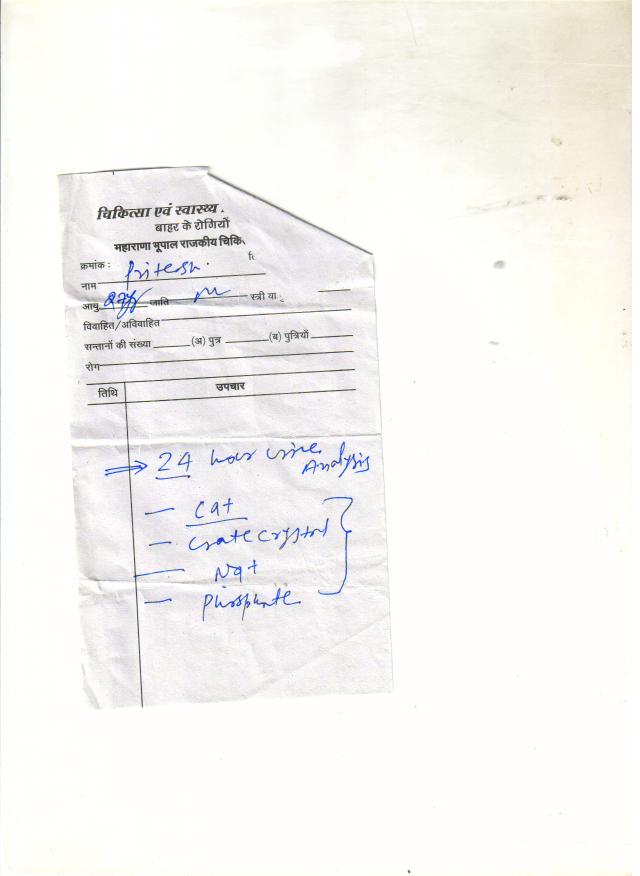 चिकित्सा एवं स्वास्थ्य .
बाहर के रोगियों
महाराणा भूपाल राजकीय चिकि
क्रमांक : Pritesh.
नाम
आयु 27y जाति M स्त्री या
विवाहित/अविवाहित
सन्तानों की संख्या (अ) पुत्र (ब) पुत्रियाँ
रोग
तिथि उपचार
⇒ 24 hour urine Analysis
— Ca+
— Urate crystal
— Na+
— Phosphate